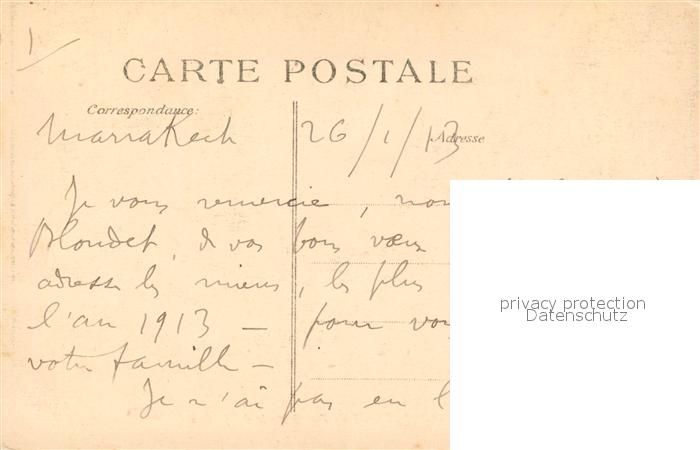 1
CARTE POSTALE
Correspondance:
Adresse
Marrakech 26/1/13
Je vous remercie, mon
Blondet, de vos bons vœux
adresse les miens, les plus
l'an 1913 — pour vous
votre famille —
Je n'ai pas eu l
privacy protection
Datenschutz